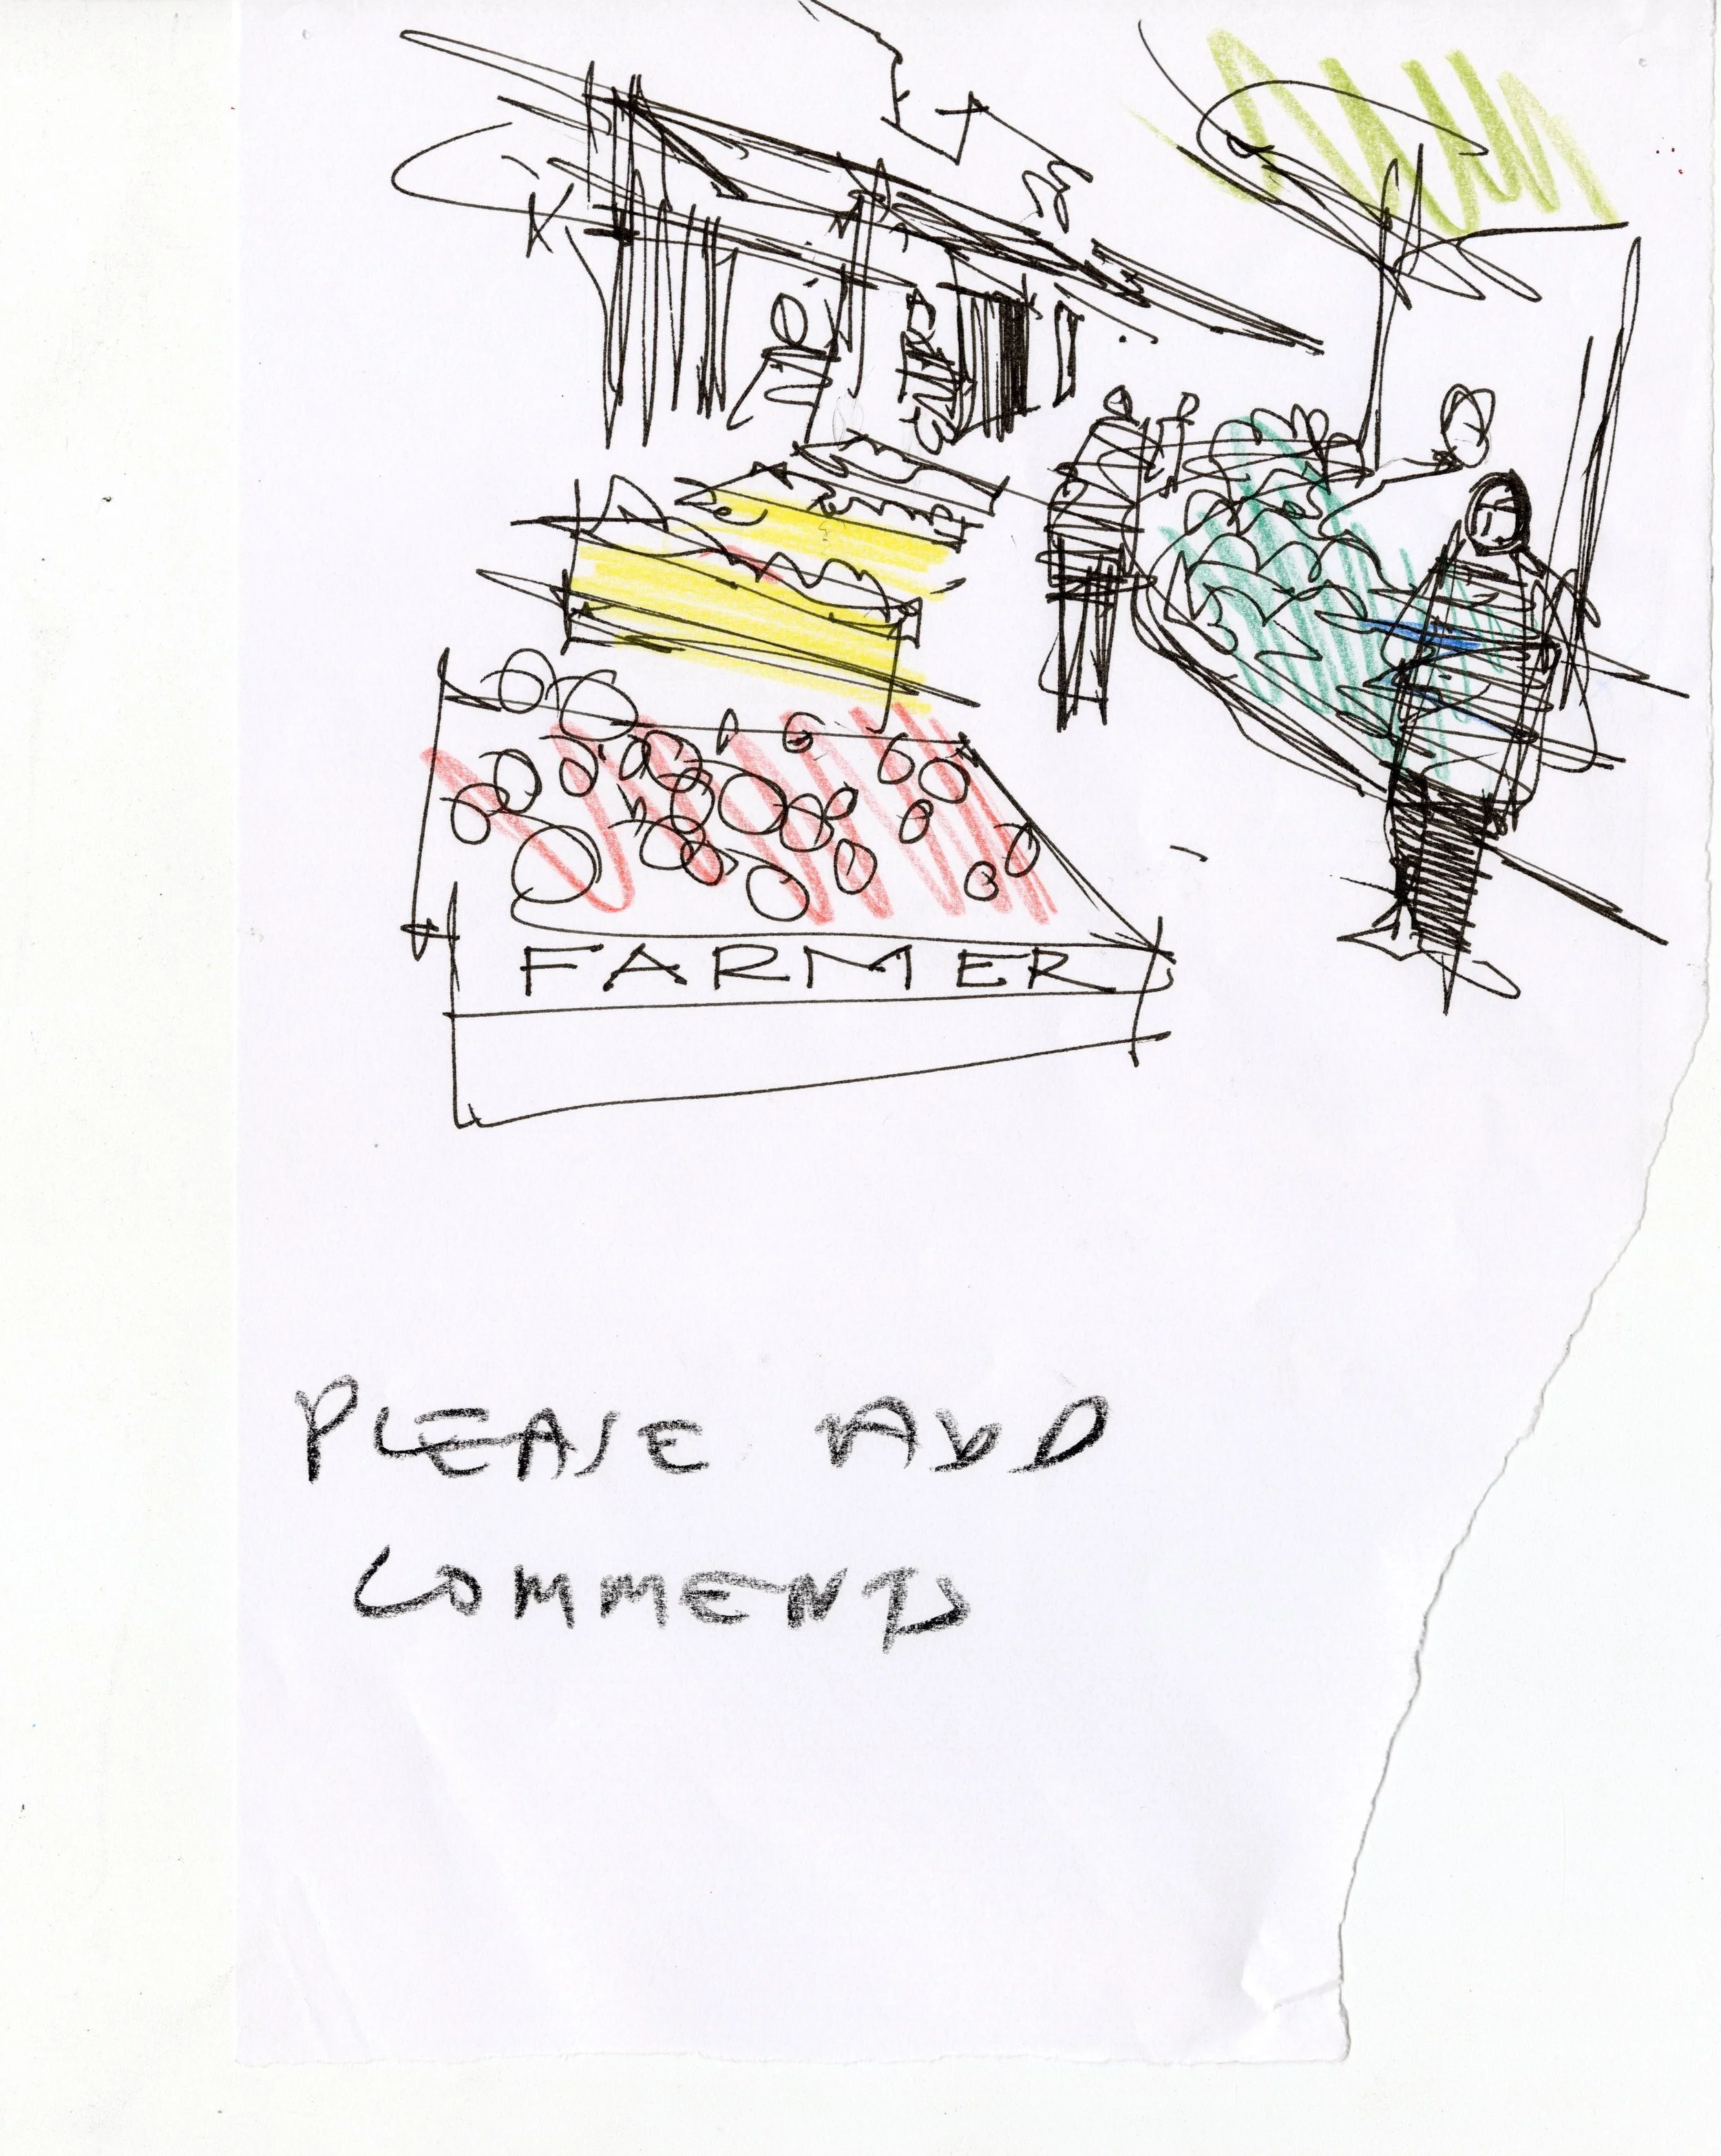 FARMER
PLEASE ADD
COMMENTS